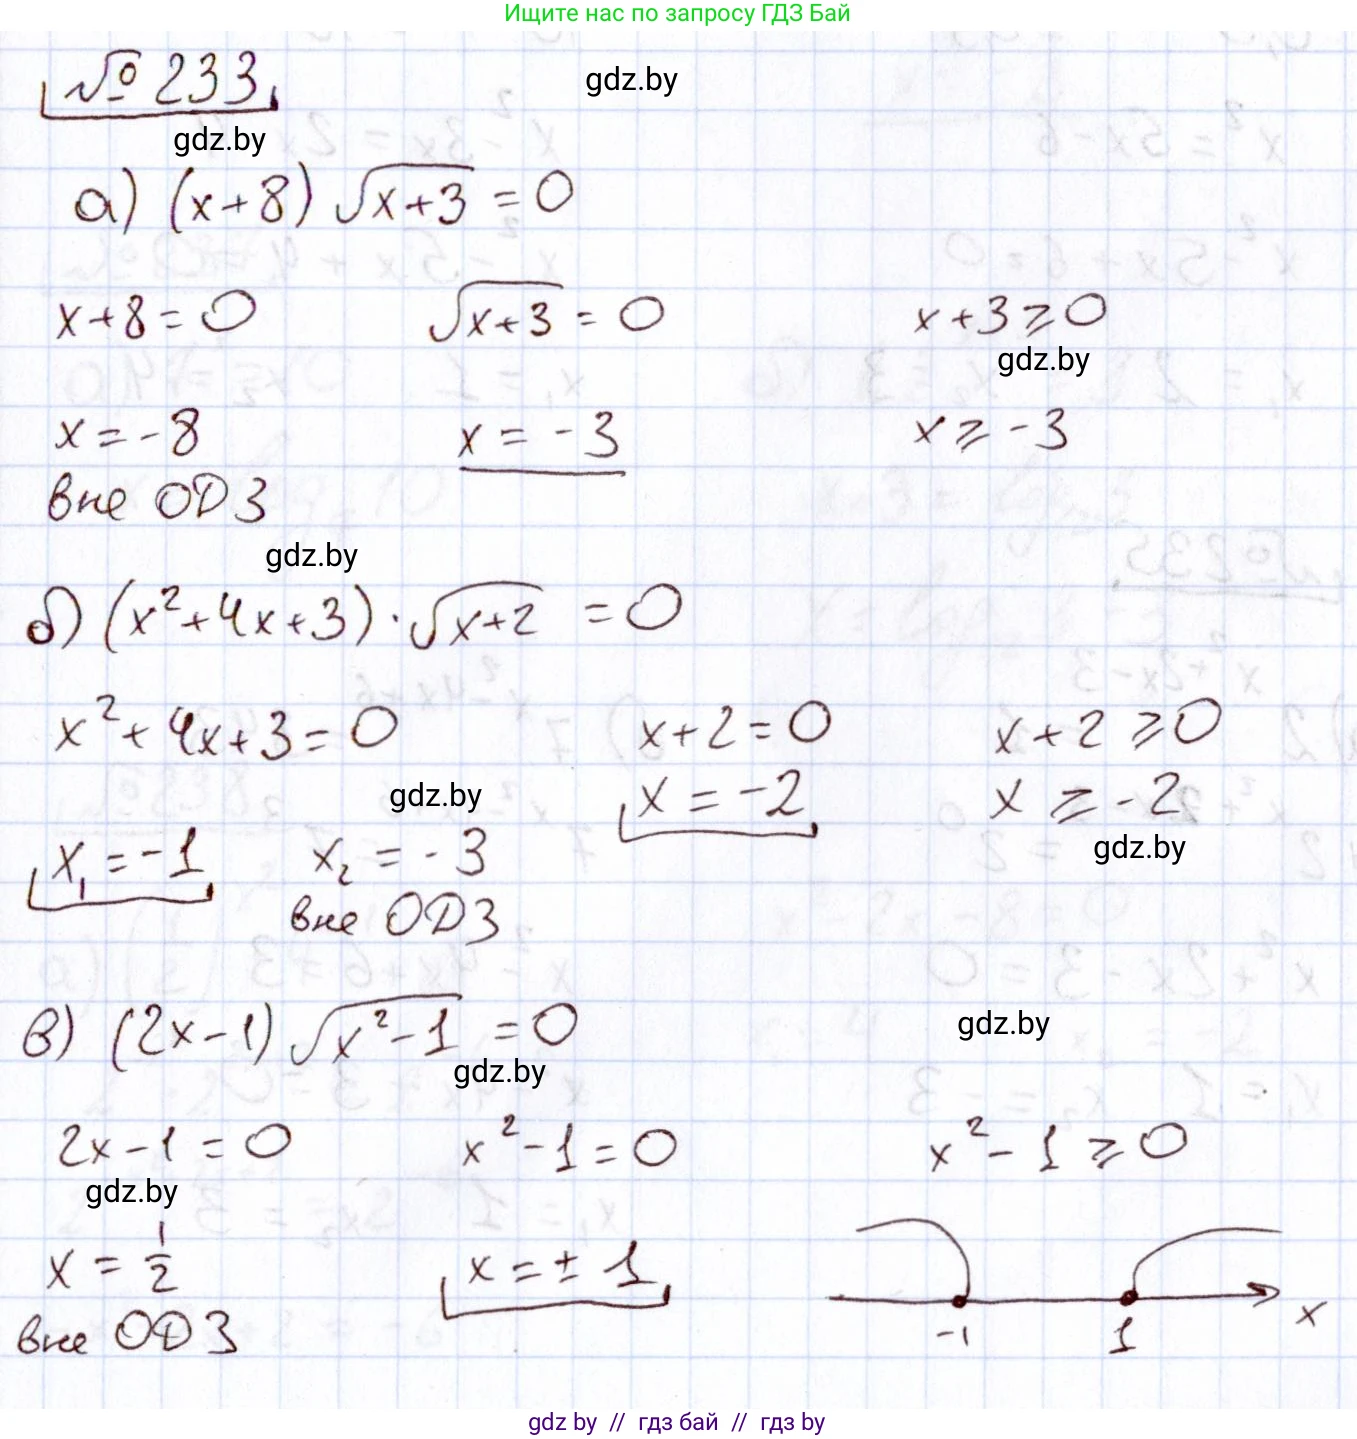 Ищите нас по запросу ГДЗ Бай
№ 233
gdz.by
gdz.by
а) (x+8) √(x+3) = 0
x+8=0 √(x+3) = 0 x+3⩾0
gdz.by
x=-8 x = -3 x⩾-3
вне ОДЗ
gdz.by
б) (x²+4x+3)·√(x+2) = 0
x²+4x+3=0 x+2=0 x+2⩾0
gdz.by x=-2 x⩾-2
gdz.by
x₁=-1 x₂=-3
вне ОДЗ
в) (2x-1) √(x²-1) = 0
gdz.by
gdz.by
2x-1=0 x²-1=0 x²-1⩾0
gdz.by
x = 1/2 x=±1
-1 1 x
вне ОДЗ
gdz by // гдз бай // гдз by